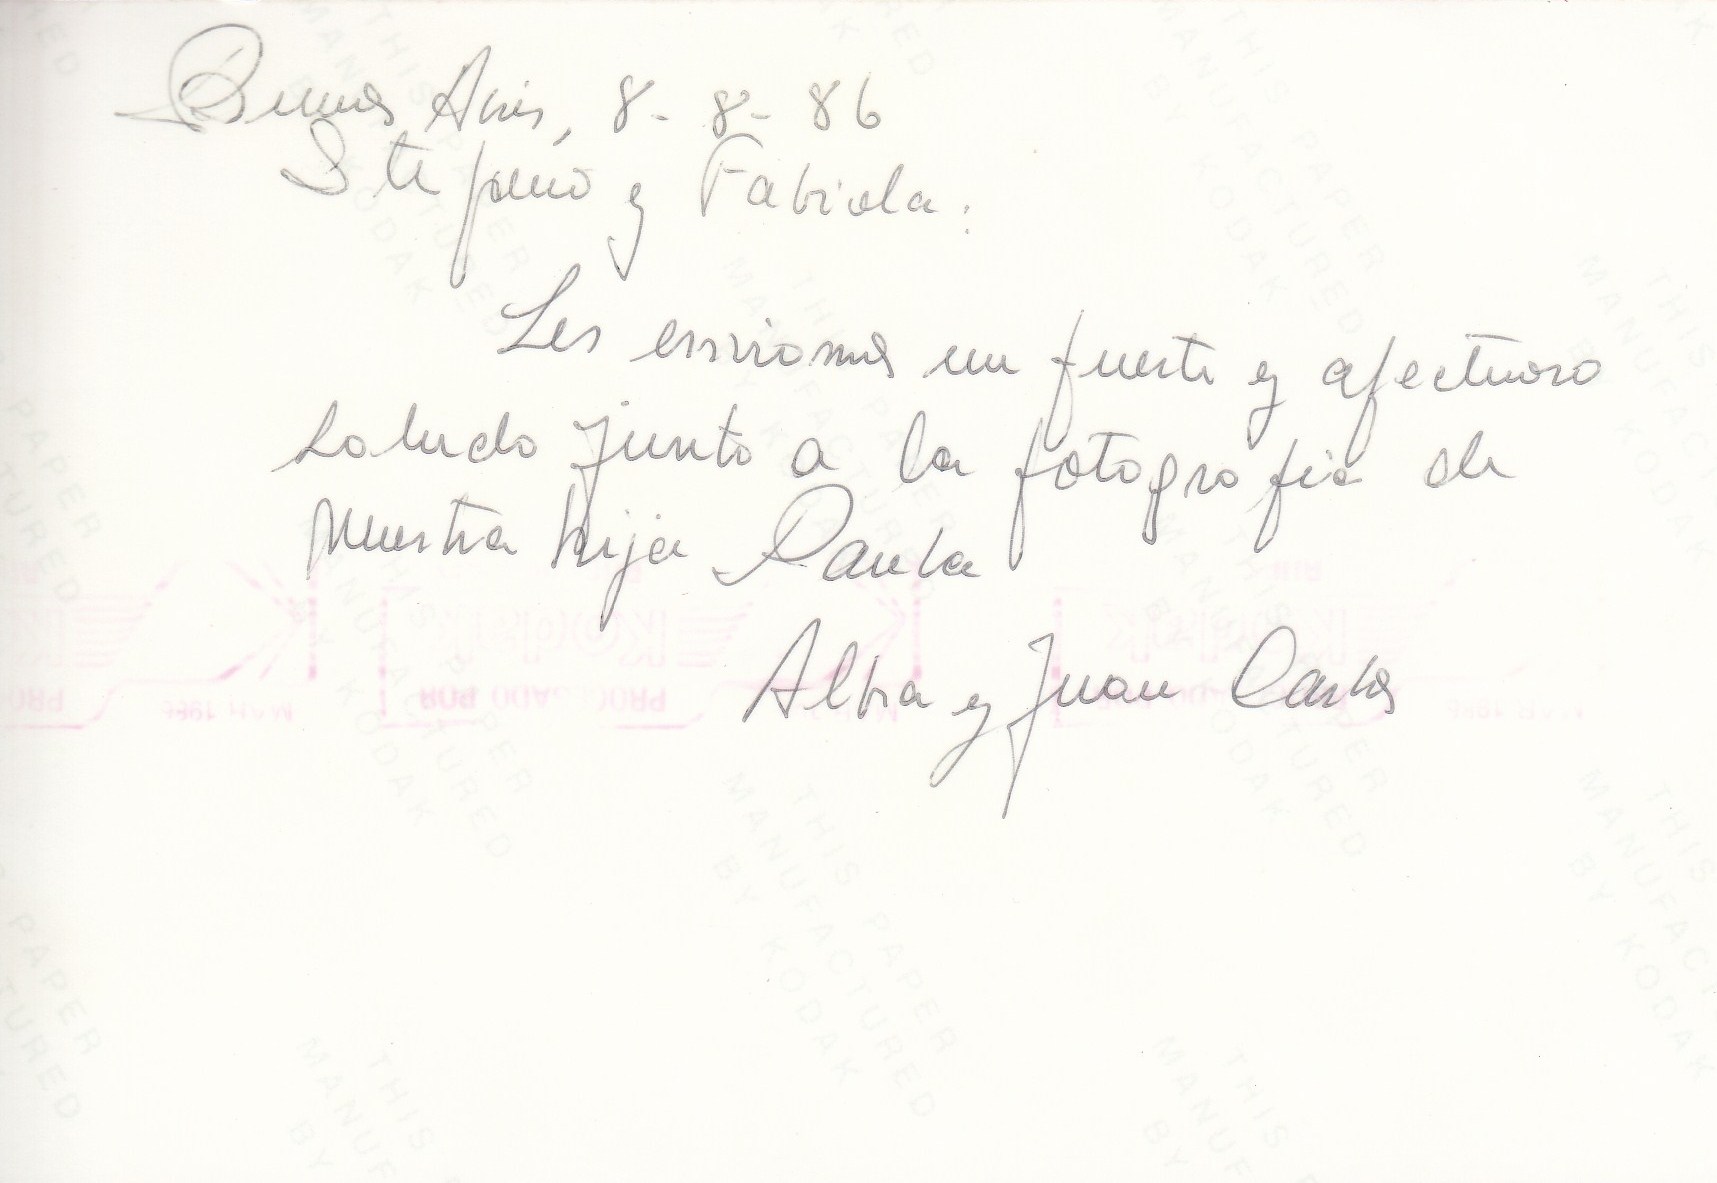 Buenos Aires, 8-8-86
Stefano y Fabiola:
Les enviamos un fuerte y afectuoso
saludo junto a la fotografia de
nuestra hija Paula
Alba y Juan Carlos
THIS PAPER
MANUFACTURED
BY KODAK
Kodak
PROCESADO POR
MAR 1986